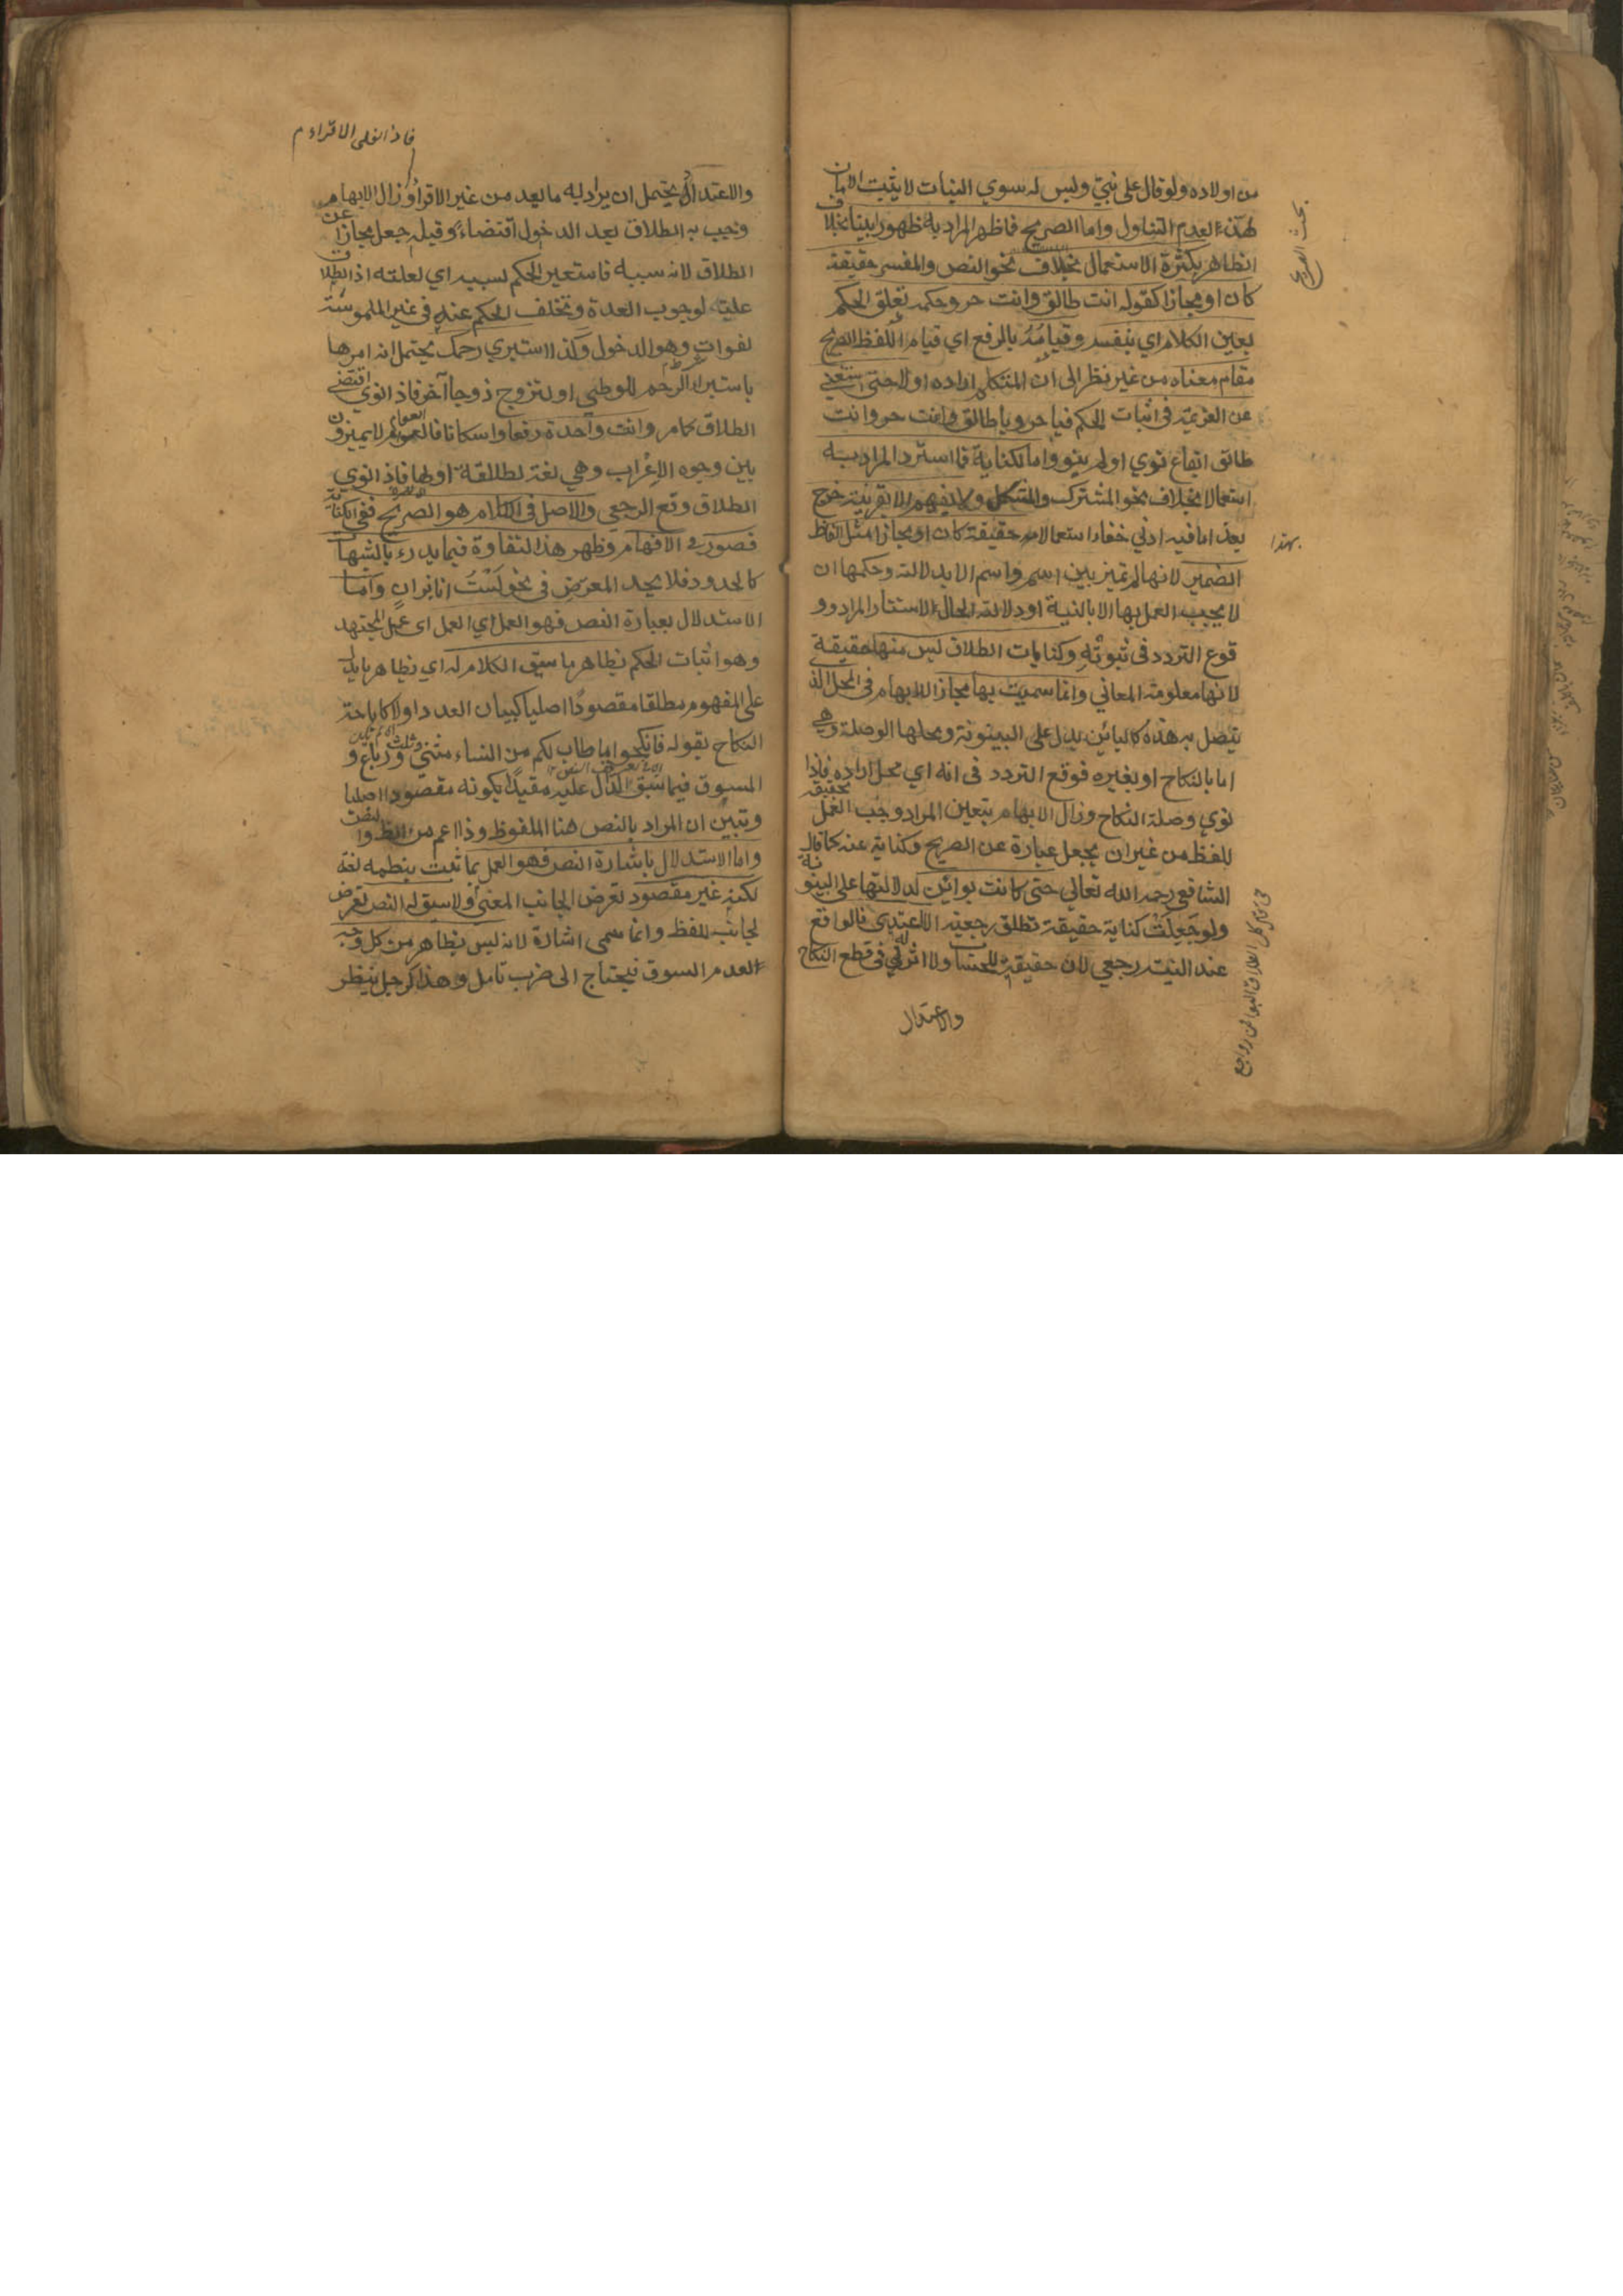 من اولاده ولو قال على بنيّ وليس له سوي البنات لا يثبت الامان
لهنّ لعدم التناول واما الصريح فما ظهر المراد به ظهورا بينا بخلاف
الظاهر بكثرة الاستعمال بخلاف نحو النص والمفسر حقيقة
كان او مجازا كقوله انت طالق وانت حر وحكمه تعلق الحكم
بعين الكلام اي بنفسه وقيامُهُ بالرفع اي قيام اللفظ الصريح
مقام معناه من غير نظر الى ان المتكلم اراده او لا حتى استغني
عن العزيمة في اثبات الحكم فيا حر ويا طالق وانت حر وانت
طالق ايقاع نوي او لم ينو واما الكناية فما استتر المراد به
استعمالا بخلاف نحو المشترك والمشكل ولا يفهم الا بقرينة خرج
بهذا
بهذا ما فيه ادني خفاء استعمالا حقيقة كان او مجازا مثل الفاظ
الضمير لانها لم تميز بين اسم واسم الا بدلالة وحكمها ان
لا يجب العمل بها الا بالنية او دلالة الحال لاستتار المراد وو
قوع التردد في ثبوته وكنايات الطلاق ليس منها حقيقة
لانها معلومة المعاني وانما سميت بها مجازا للابهام في المحل الذ
يتصل به هذه كالبائن يدل على البينونة ومحلها الوصلة وهي
اما بالنكاح او بغيره فوقع التردد في انه اي محل اراده فاذا
نوي وصلة النكاح وزال الابهام بتعين المراد وجب العمل بحقيقة
اللفظ من غير ان يجعل عبارة عن الصريح وكناية عنه كما قال
الشافعي رحمه الله تعالى حتى كانت بوائن لدلالتها على البينونة
ولو جعلت كناية حقيقة تطلق رجعية الا اعتدي فالواقع
عند النية رجعي لان حقيقته للحساب ولا اثر له في قطع النكاح
والاعتدال
بحث الصريح
فاذا نوى الاقراء م
والاعتداد يحتمل ان يراد به ما يعد من غير الاقراء وزال الابهام
وجب به الطلاق بعد الدخول اقتضاءً وقبله جعل مجازا عن
الطلاق لانه سببه فاستعير الحكم لسببه اي لعلته اذ الطلاق
علية لوجوب العدة وتخلف الحكم عنه في غير الملموسة
لفوات شرطه وهو الدخول وكذا استبري رحمك يحتمل انه امرها
باستبراء الرحم للوطي او لتزوج زوجا آخر فاذا نوي اقتضى
الطلاق كما مر وانت واحدة رفعا واسكانا فالعوام لا يميزون
بين وجوه الاعراب وهي نعة لطلقة او لها فاذا نوي
الطلاق وقع الرجعي والاصل في الكلام هو الصريح ففي الكناية
قصور في الافهام وظهر هذا التفاوة فيما يدرء بالشبهات
كالحدود فلا يحد المعرّض في نحو لَسْتُ انا بزانٍ واما
الاستدلال بعبارة النص فهو العمل اي العمل اي عمل المجتهد
وهو اثبات الحكم بظاهر ما سيق الكلام له اي بظاهر ما يدل
على المفهوم مطلقا مقصودًا اصليا كبيان العدد اولا كاباحة
النكاح بقوله فانكحوا ما طاب لكم من النساء مثنى وثلث ورباع و
المسبوق فيما سبق الدال عليه مقيدًا بكونه مقصودا اصليا
وتبين ان المراد بالنص هنا الملفوظ وذا اعم من الظ والنص
واما الاستدلال باشارة النص فهو العمل بما ثبت بنظمه لغة
لكنه غير مقصود تعرض لجانب المعنى ولا سيق له النص تعرض
لجانب اللفظ وانما سمى اشارة لانه ليس بظاهر من كل وجه
لعدم السوق فيحتاج الى ضرب تامل وهذا كرجل ينظر